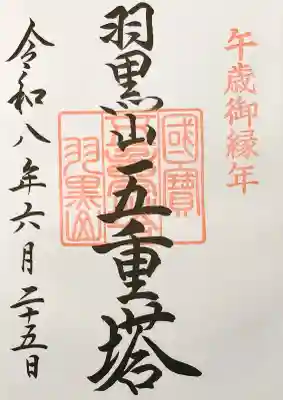 午歳御縁年
羽黒山五重塔
國寳
羽黒山
令和八年六月二十五日